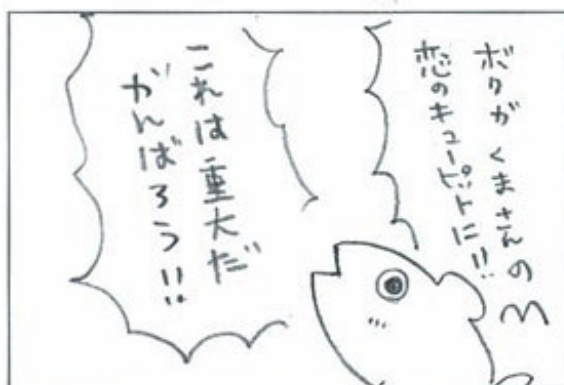 ボクがくまさんの
恋のキューピットに!!
これは重大だ
がんばろう!!